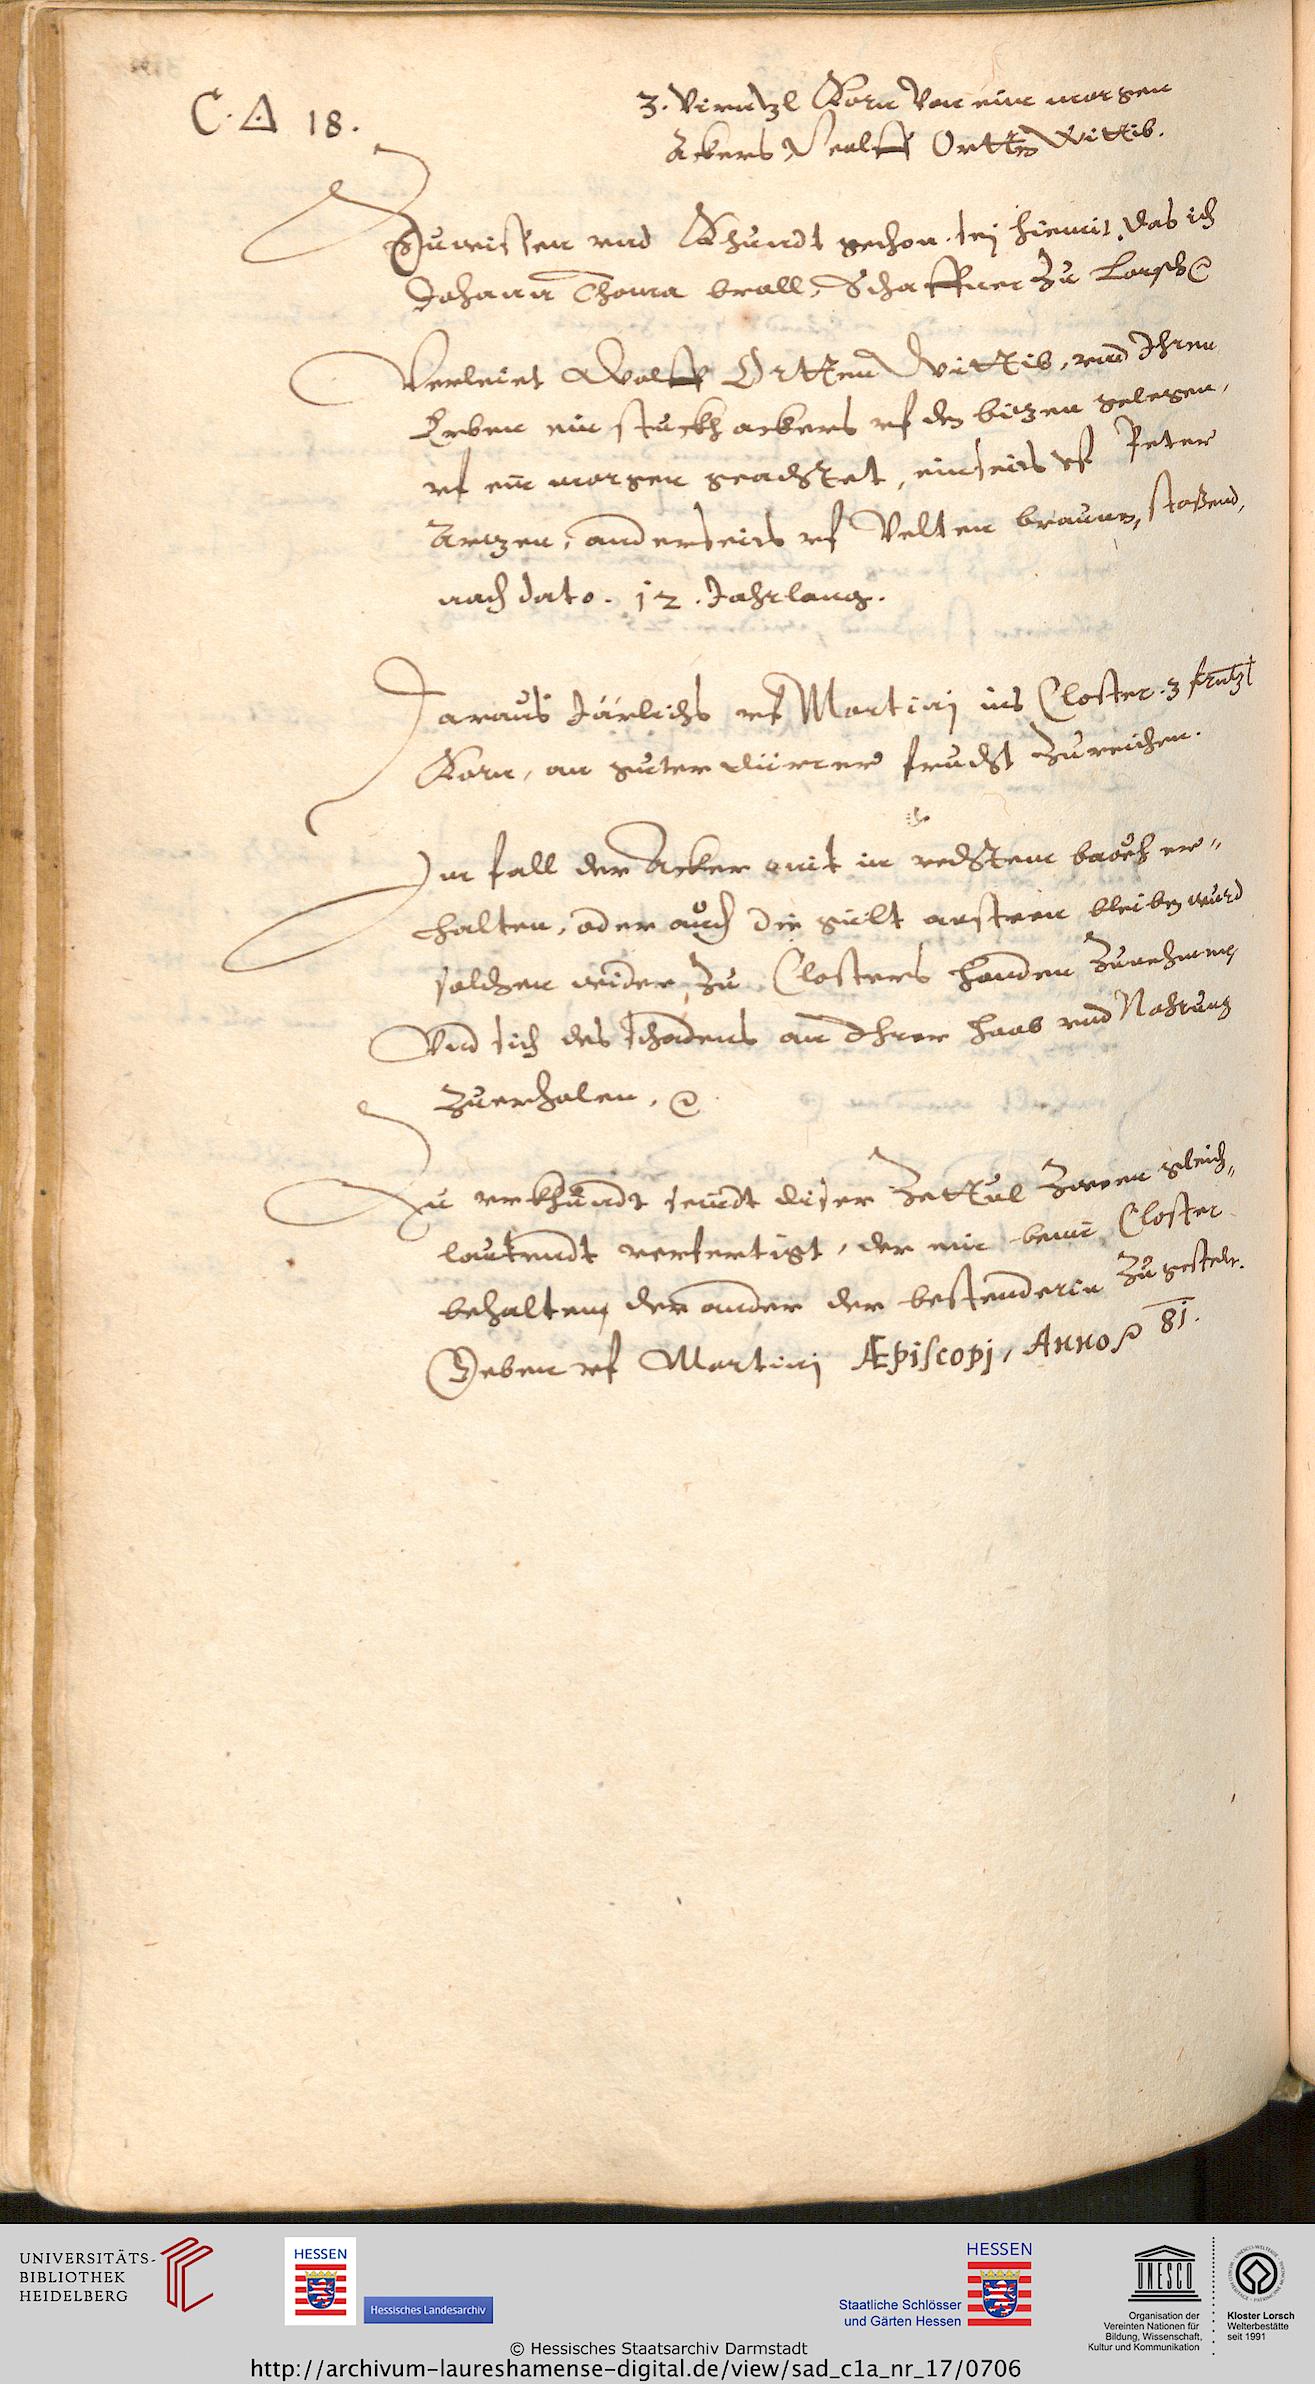 C. Δ 18.
3. Virntzl Korn Von eim morgen
Ackers Wolff Ortten Wittib.
Zuwissen vnd Khundt gethon sej hiemit, das ich
Johann Thoma brall, Schaffner Zu Lorsch
Verleiet Wolff Ortten Wittib, vnd Ihren
Erben ein stuckh ackers vf den bitzen gelegen,
vf ein morgen geachtet, einseits vf Peter
Artzen, anderseits vf Velten braunen, stoßend,
nach dato. 12. Jahrlang.
Daraus Järlichs vf Martinj ins Closter 3 firntzl
Korn, an guter dürrer frucht Zureichen.
Im fall der Acker nit in rechtem bawh er-
halten, oder auch die gült ansteen bleiben würd
solchen wider Zu Closters handen Zunehmen
Vnd sich des schadens an Ihrer haab vnd Nahrung
Zuerholen.
Zu vrkhundt seindt diser Zettul Zween gleich-
lautendt verfertigt, der ein beim Closter
behalten, der ander der bestenderin Zugestelt.
Geben vf Martinj Æpiscopj, Anno 81.
UNIVERSITÄTS-
BIBLIOTHEK
HEIDELBERG
HESSEN
Hessisches Landesarchiv
HESSEN
Staatliche Schlösser
und Gärten Hessen
UNESCO
Organisation der
Vereinten Nationen für
Bildung, Wissenschaft,
Kultur und Kommunikation
Kloster Lorsch
Welterbestätte
seit 1991
© Hessisches Staatsarchiv Darmstadt
http://archivum-laureshamense-digital.de/view/sad_c1a_nr_17/0706